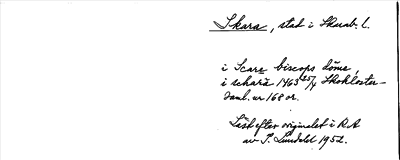 Skara, stad i Skarab. l.
i Scare biscops döme,
i scharä 1463 25/4 Skokloster-
saml. nr 168 or.
Läst efter originalet i RA
av I. Lundahl 1952.